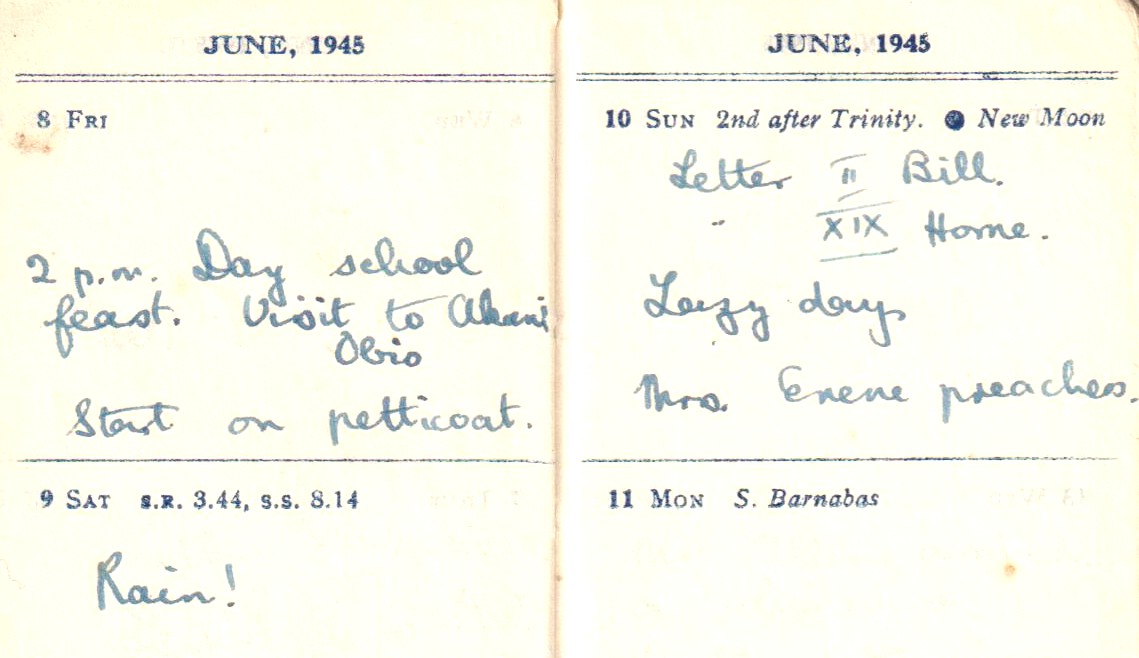 JUNE, 1945
8 FRI
2 p.m. Day school
feast. Visit to Akani
Obio
Start on petticoat.
9 SAT S.R. 3.44, S.S. 8.14
Rain!
JUNE, 1945
10 SUN 2nd after Trinity. New Moon
Letter II Bill.
" XIX Home.
Lazy day
Mrs. Enene preaches.
11 MON S. Barnabas